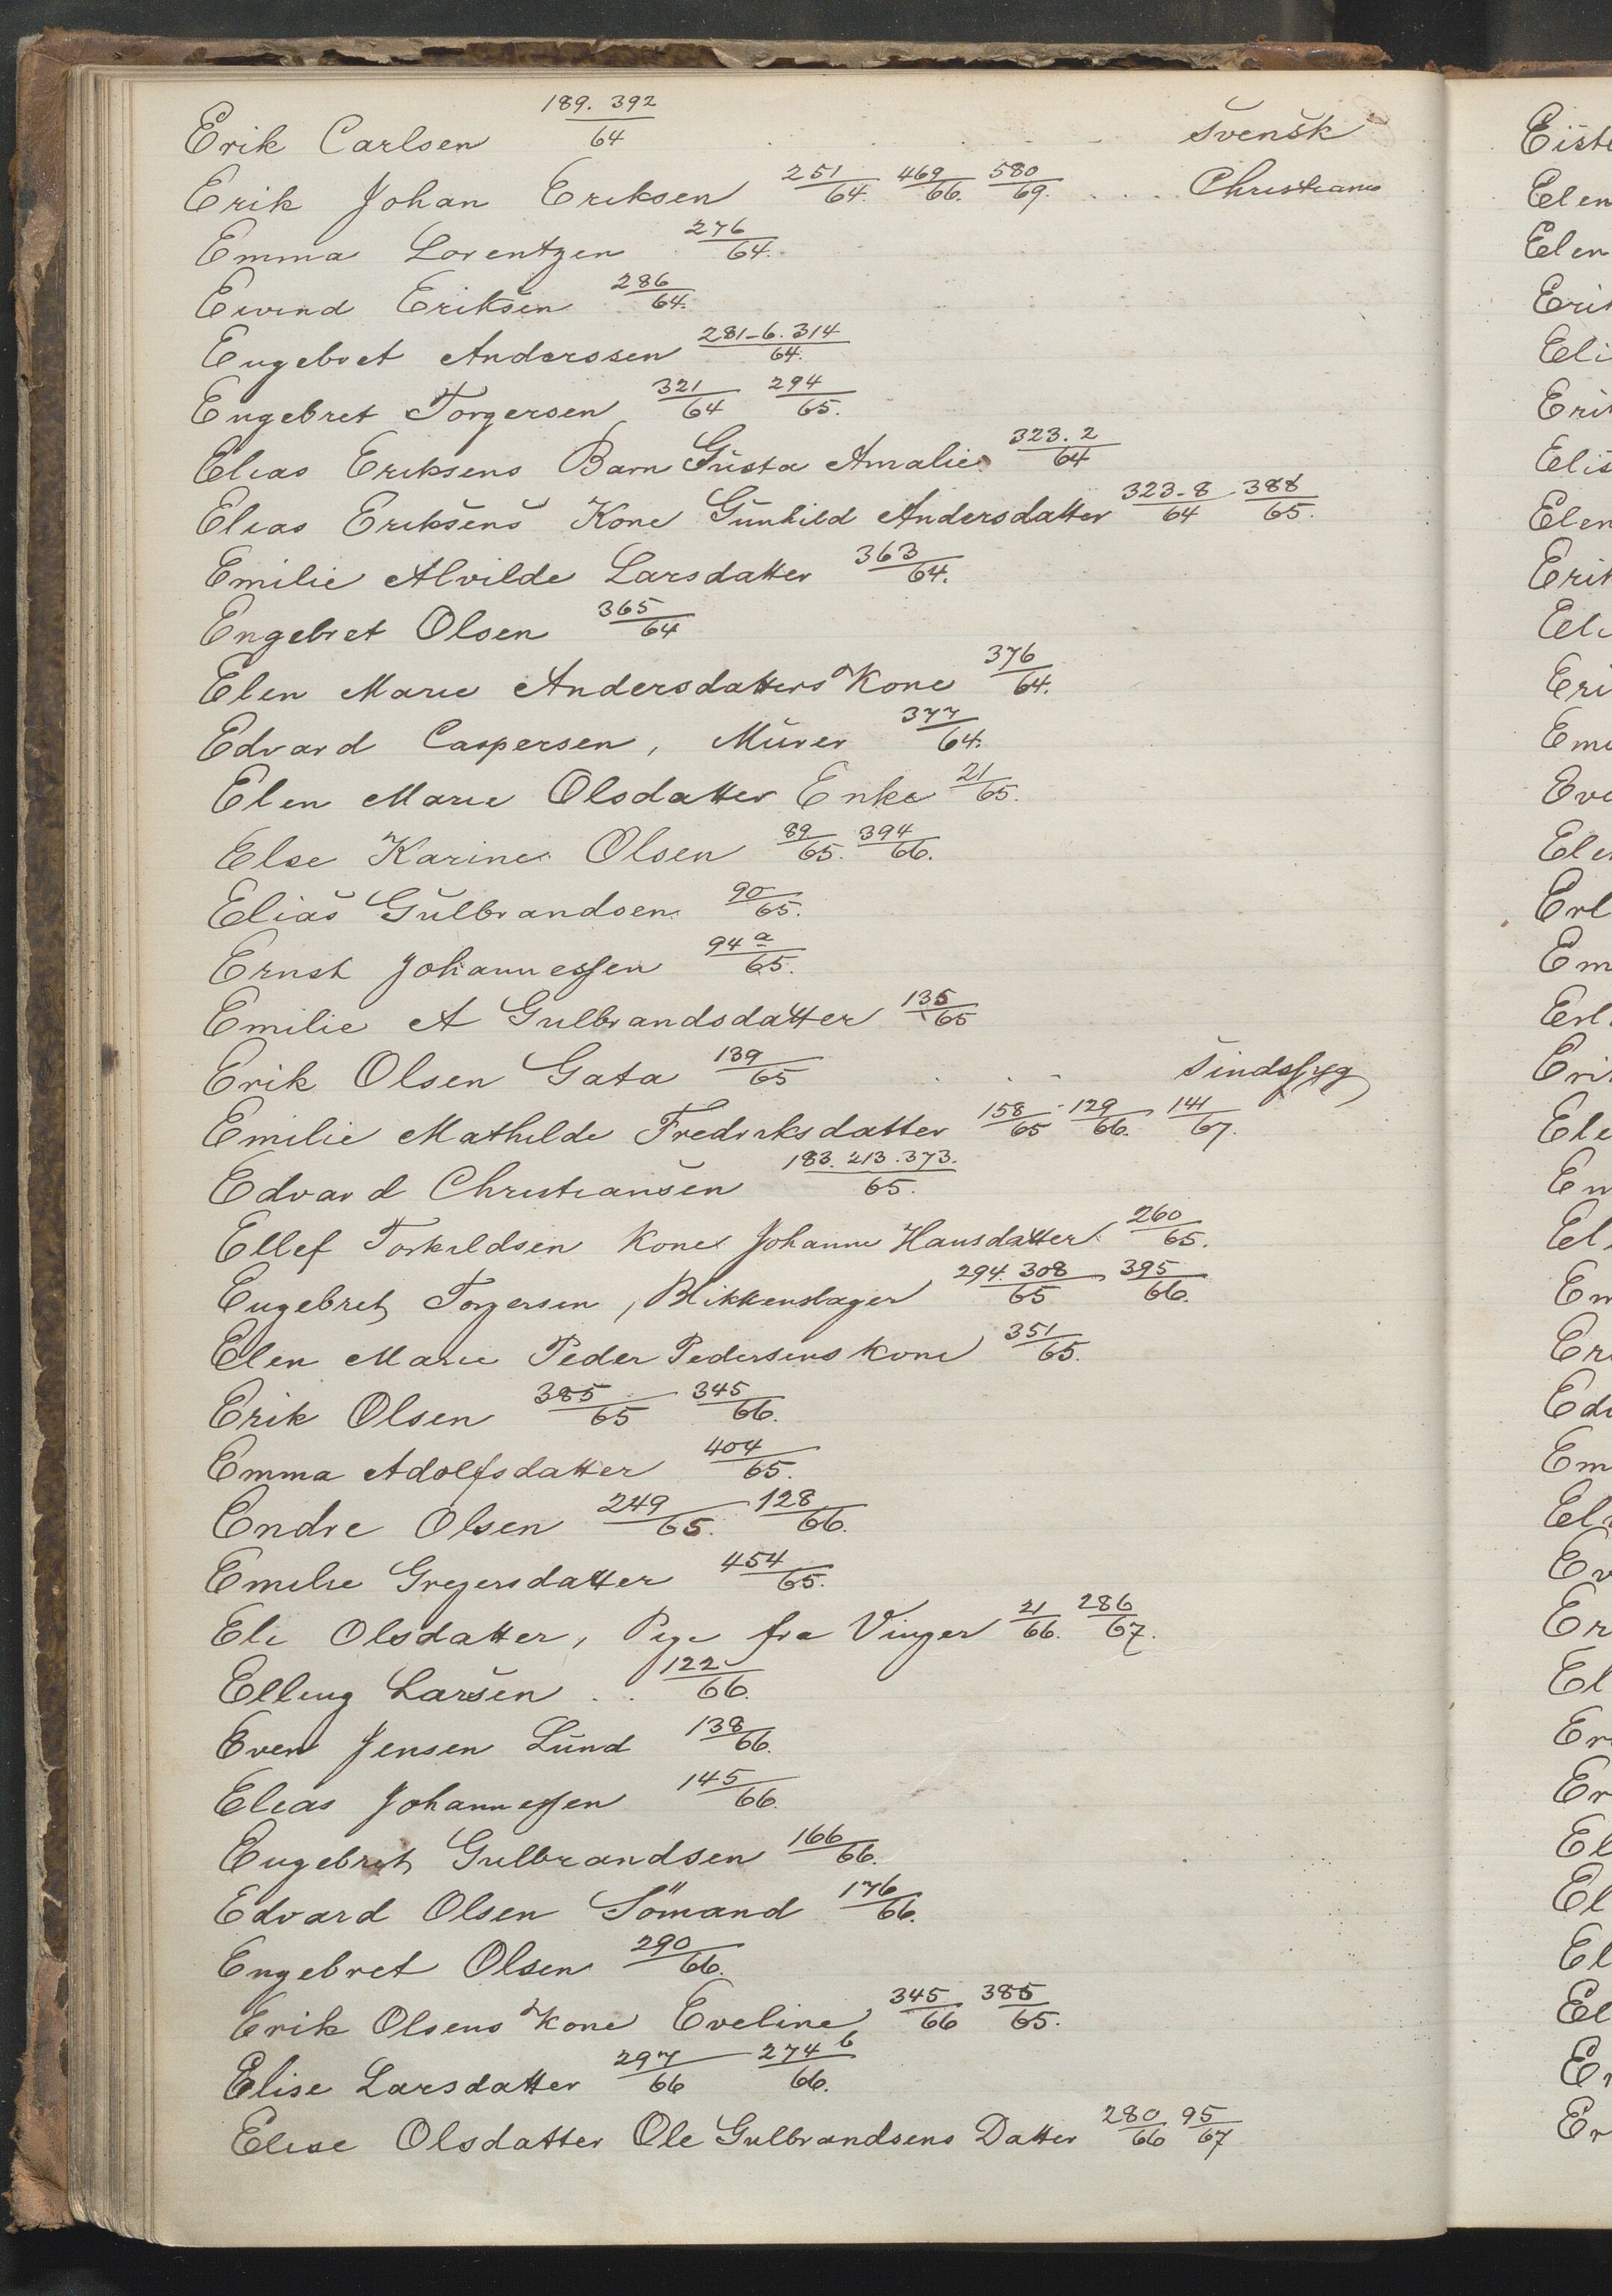 Erik Carlsen 189. 392/64 . . . . . Svensk
Erik Johan Eriksen 251/64. 469/66. 580/69. . . . Christiania
Emma Lorentzen 276/64.
Eivind Eriksen 286/64.
Engebret Anderssen 281-6. 314/64.
Engebret Torgersen 321/64 294/65.
Elias Eriksens Barn Gusta Amalie 323. 2/64
Elias Eriksens Kone Gunhild Andersdatter 323-8/64 388/65.
Emilie Alvilde Larsdatter 363/64.
Engebret Olsen 365/64
Elen Marie Andersdatters Kone 376/64.
Edvard Caspersen, Murer 377/64.
Elen Marie Olsdatter Enke 21/65.
Else Karine Olsen 89/65. 394/66.
Elias Gulbrandsen 90/65.
Ernst Johannessen 94 a/65.
Emilie A Gulbrandsdatter 135/65
Erik Olsen Gata 139/65 . . - Sindssyg
Emilie Mathilde Fredriksdatter 158/65 - 129/66. 141/67.
Edvard Christiansen 183. 213. 373./65.
Ellef Torkildsen Kone Johanne Hansdatter 260/65.
Engebret Torgersen, Blikkenslager 294. 308/65 395/66.
Elen Marie Peder Pedersens Kone 351/65.
Erik Olsen 385/65 345/66.
Emma Adolfsdatter 404/65.
Endre Olsen 249/65. 128/66.
Emilie Gregersdatter 454/65.
Eli Olsdatter, Pige fra Vinger 21/66. 286/67.
Elling Larsen . . 122/66.
Even Jensen Lund 138/66.
Elias Johannessen 145/66.
Engebret Gulbrandsen 166/66.
Edvard Olsen Sömand 176/66.
Engebret Olsen 290/66.
Erik Olsens Kone Eveline 345/66 385/65.
Elise Larsdatter 297/66 274 b/66.
Elise Olsdatter Ole Gulbrandsens Datter 280/66 95/67